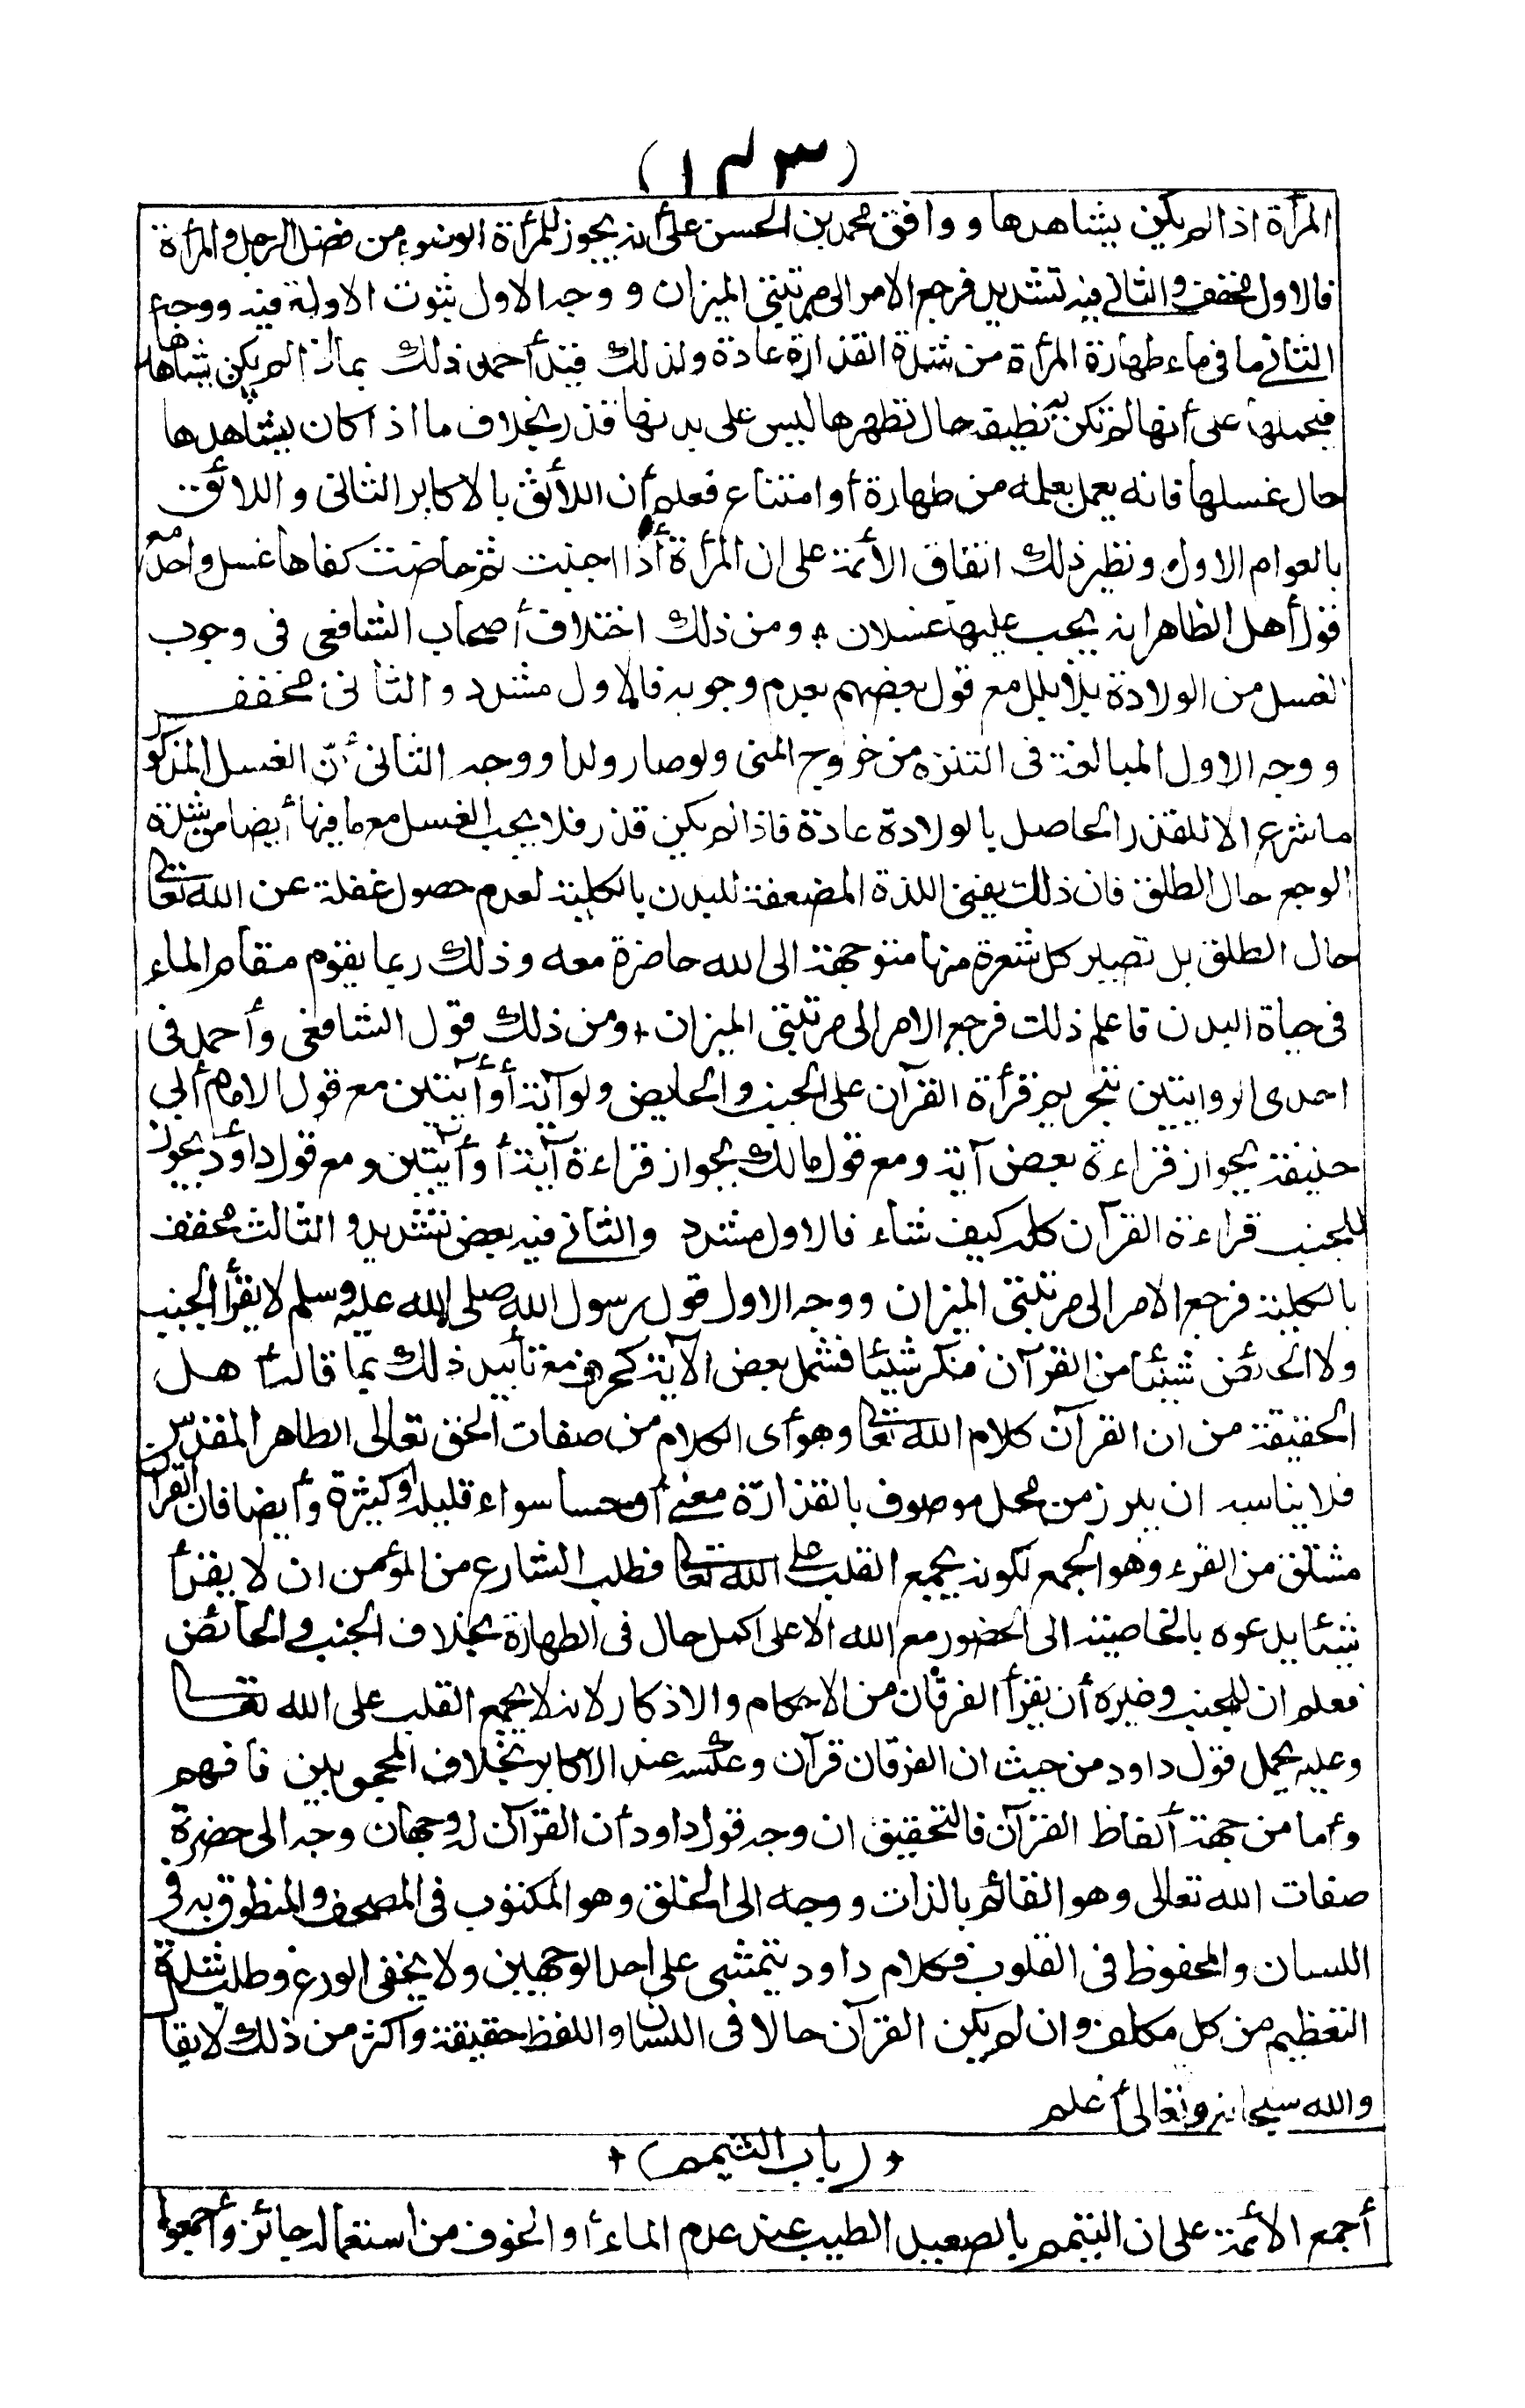 (١٢٣)
المرأة اذا لم يكن يشاهدها ووافق محمد بن الحسن على أنه يجوز للمرأة الوضوء من فضل الرجل والمرأة
فالاول مخفف والثاني فيه تشديد فرجع الامر الى مرتبتي الميزان ووجه الاول ثبوت الادلة فيه ووجه
الثاني ما في ماء طهارة المرأة من شدة القذارة عادة ولذلك قيد أحمد ذلك بما اذا لم يكن يشاهدها
فيحملها على أنها لم تكن نظيفة حال تطهرها ليس على بدنها قذر بخلاف ما اذا كان يشاهدها
حال غسلها فانه يعمل بعلمه من طهارة أو امتناع فعلم أن اللائق بالاكابر الثاني واللائق
بالعوام الاول ونظير ذلك اتفاق الأئمة على ان المرأة أذا اجنبت ثم حاضت كفاها غسل واحد مع
قول أهل الظاهر انه يجب عليها غسلان * ومن ذلك اختلاف أصحاب الشافعي في وجوب
الغسل من الولادة بلا بلل مع قول بعضهم بعدم وجوبه فالاول مشدد والثاني مخفف
ووجه الاول المبالغة في التنزه من خروج المني ولو صار ولدا ووجه الثاني أنّ الغسل المذكور
ما شرع الا للقذر الحاصل بالولادة عادة فاذا لم يكن قذر فلا يجب الغسل مع ما فيها أيضا من شدة
الوجع حال الطلق فان ذلك يفني اللذة المضعفة للبدن بالكلية لعدم حصول غفلة عن الله تعالى
حال الطلق بل تصير كل شعرة منها متوجهة الى الله حاضرة معه وذلك ربما يقوم مقام الماء
في حياة البدن فاعلم ذلك فرجع الامر الى مرتبتي الميزان * ومن ذلك قول الشافعي وأحمد في
احدى الروايتين بتحريم قرأة القرآن على الجنب والحايض ولو آية أو أيتين مع قول الامام أبي
حنيفة بجواز قراءة بعض آية ومع قول مالك بجواز قراءة آية أو أيتين ومع قول داؤد يجوز
للجنب قراءة القرآن كله كيف شاء فالاول مشدد والثاني فيه بعض تشديد والثالث مخفف
بالكلية فرجع الامر الى مرتبتي الميزان ووجه الاول قول رسول الله صلى الله عليه وسلم لا يقرأ الجنب
ولا الحائض شيئا من القرآن فنكر شيئا فشمل بعض الآية كحرف مع تأييد ذلك بما قاله أهل
الحقيقة من ان القرآن كلام الله تعالى وهو أى الكلام من صفات الحق تعالى الطاهر المقدس
فلا يناسبه ان يبرز من محل موصوف بالقذارة معنى أو حسا سواء قليله أو كثيرة وأيضا فان القرآن
مشتق من القرء وهو الجمع لكونه يجمع القلب على الله تعالى فطلب الشارع من المؤمن ان لا يقرأ
شيئا يدعوه بالخاصية الى الحضور مع الله الا على اكمل حال في الطهارة بخلاف الجنب والحائض
فعلم ان للجنب وغيره أن يقرأ الفرقان من الاحكام والاذكار لانه لا يجمع القلب على الله تعالى
وعليه يحمل قول داود من حيث ان الفرقان قرآن وعكسه عند الاكابر بخلاف المحجوبين فافهم
وأما من جهة ألفاظ القرآن فالتحقيق ان وجه قول داود أن القرآن له وجهان وجه الى حضرة
صفات الله تعالى وهو القائم بالذات ووجه الى الخلق وهو المكتوب في المصحف والمنطوق به في
اللسان والمحفوظ في القلوب فكلام داود يتمشى على احد الوجهين ولا يخفى الورع وطلب شدة
التعظيم من كل مكلف وان لم يكن القرآن حالا في اللسان واللفظ حقيقة واكثر من ذلك لا يقال
والله سبحانه وتعالى أعلم
* (باب التيمم) *
أجمع الأئمة على ان التيمم بالصعيد الطيب عند عدم الماء أو الخوف من استعماله جائز وأجمعوا